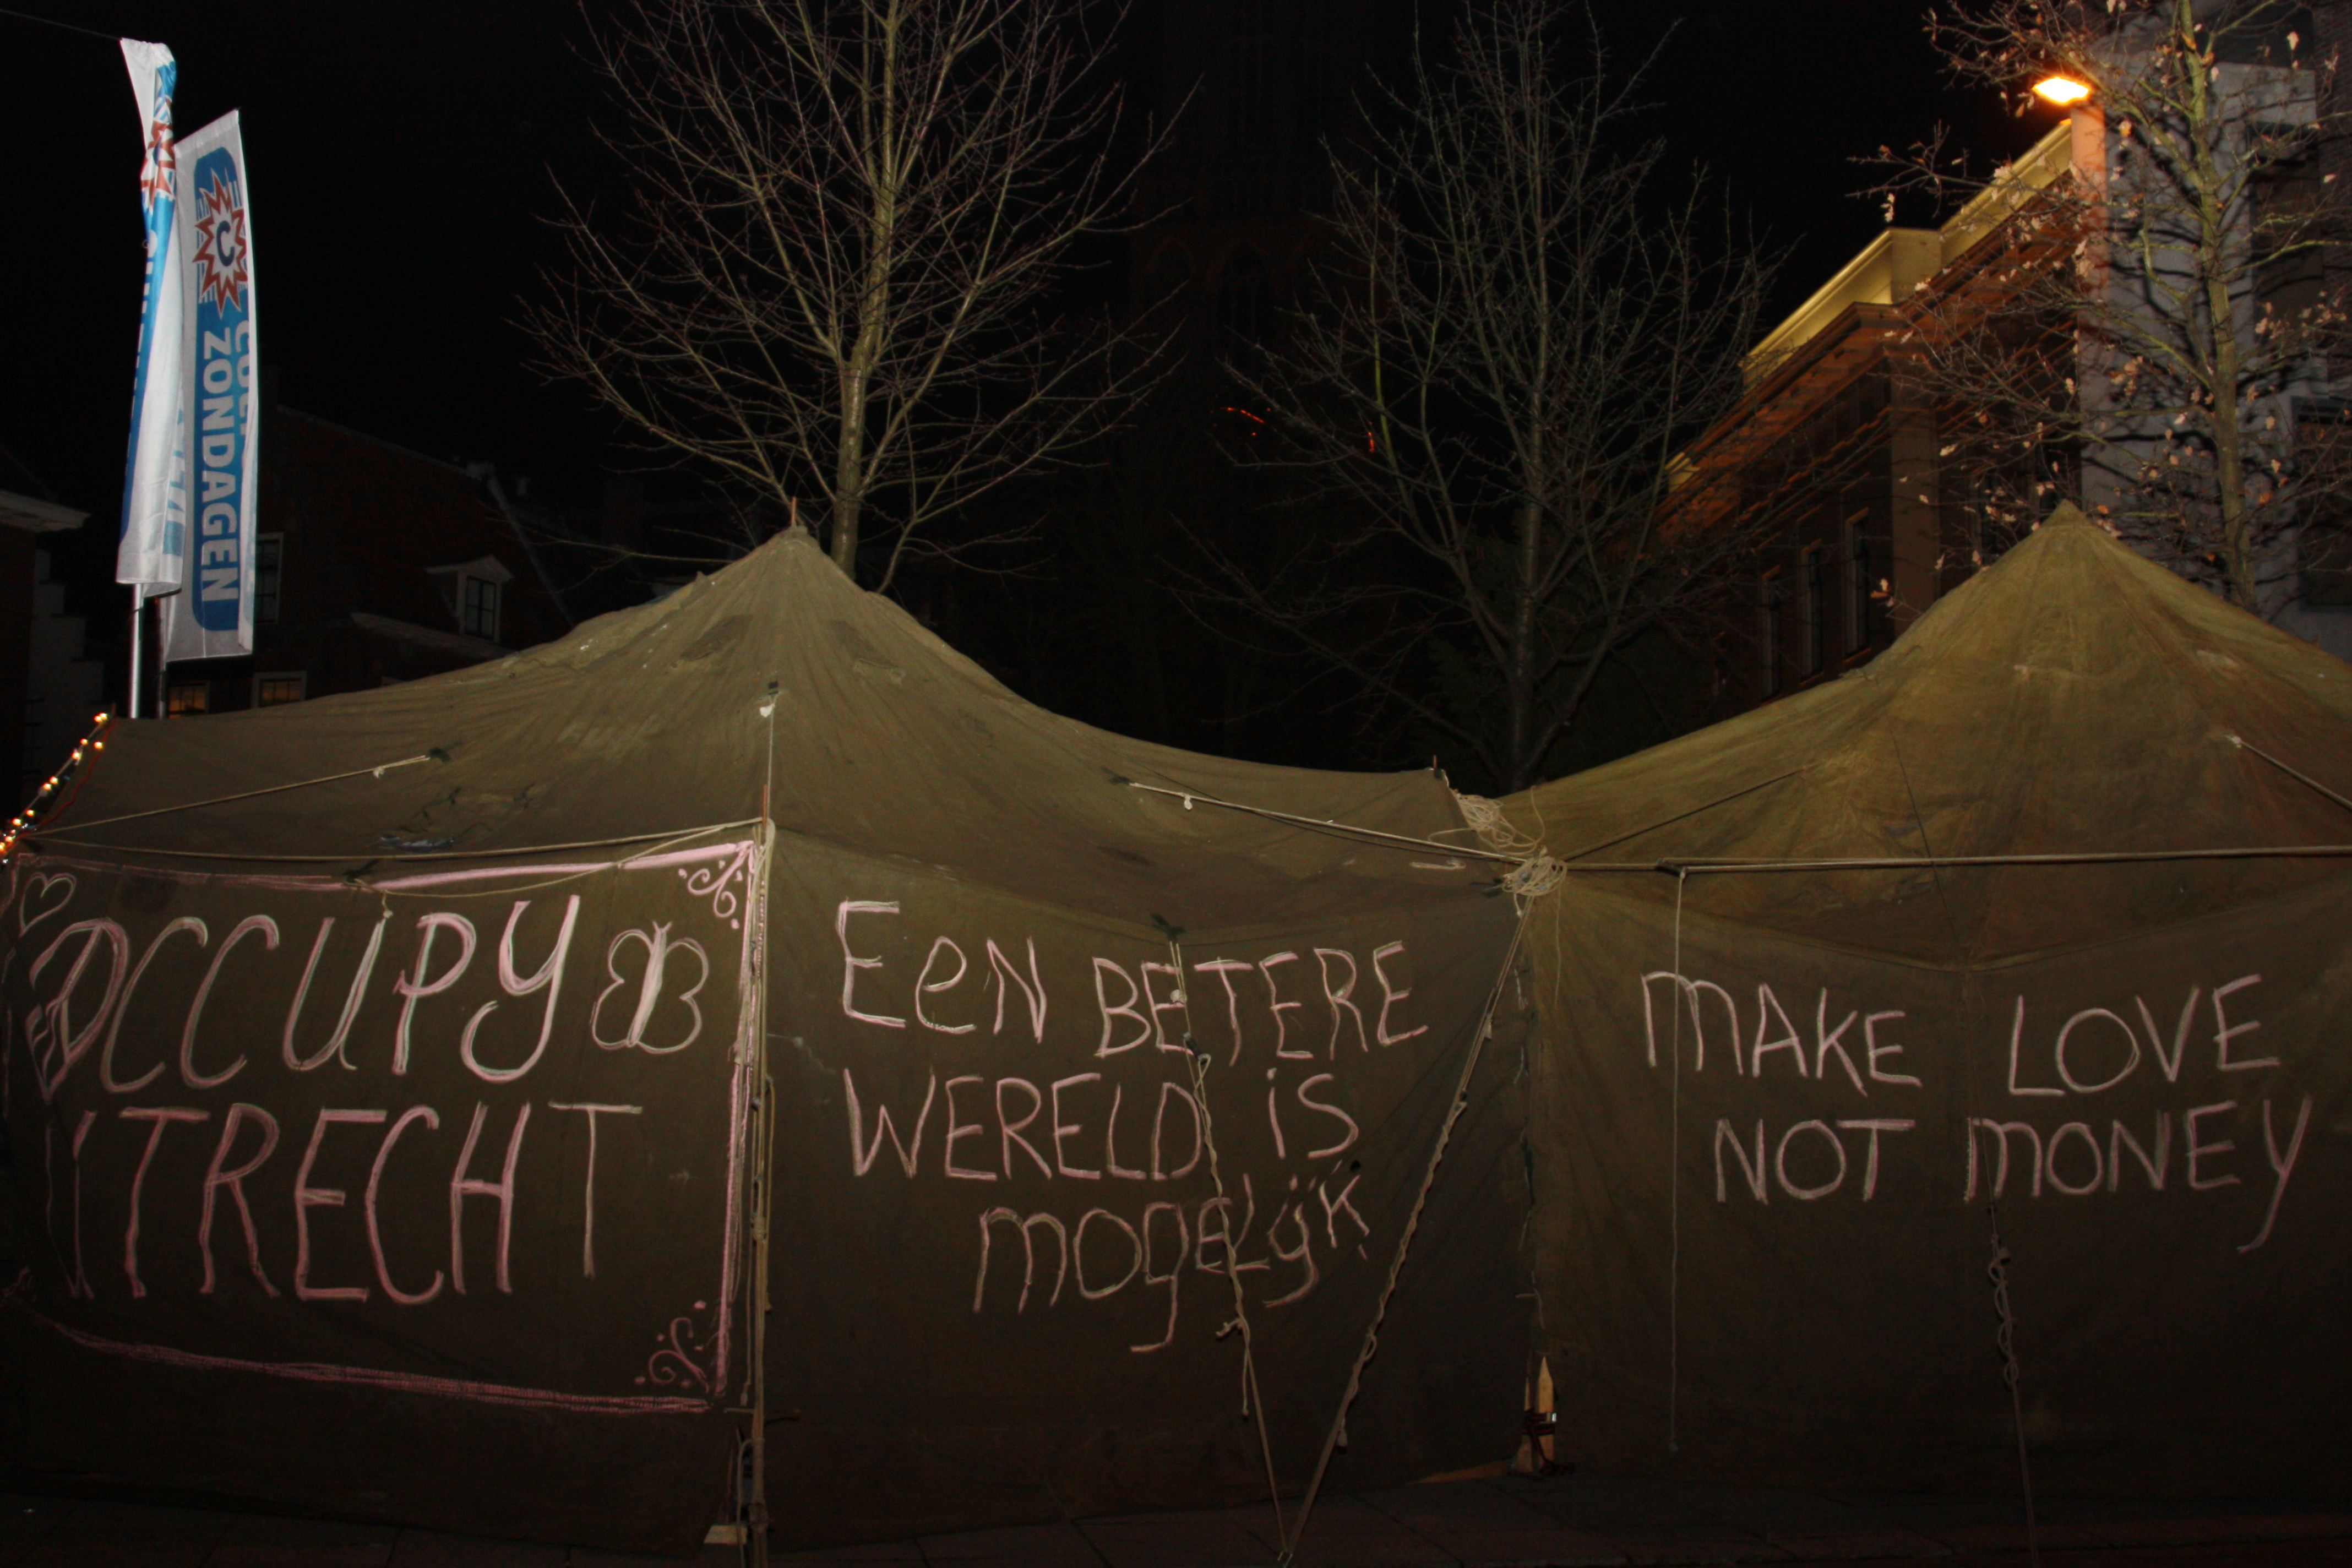 C
ZONDAGEN
OCCUPY
UTRECHT
EEN BETERE
WERELD iS
mogELijK
mAKE LOVE
NOT mONEy